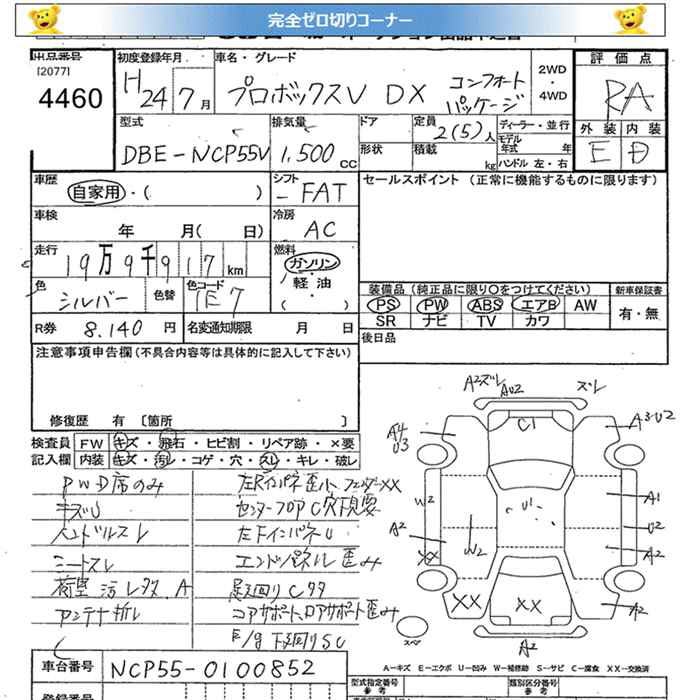 完全ゼロ切りコーナー
出品番号 初度登録年月 車名・グレード 評価点
[2077]
4460
H24 7月 プロボックスV DX コンフォートパッケージ
2WD・4WD
RA
型式 排気量 ドア 定員 2(5)人 ディーラー・並行 外装 内装
DBE-NCP55V 1,500cc 形状 積載 kg モデル年式 年 ハンドル 左・右 E D
車歴 自家用・( ) シフト FAT セールスポイント (正常に機能するものに限ります)
車検 年 月( 日) 冷房 AC
走行 19万9千917km 燃料 ガソリン・軽油・( )
色 シルバー 色替 色コード 1E7
装備品 (純正品に限り○をつけてください) 新車保証書
PS PW ABS エアB AW 有・無
SR ナビ TV カワ
R券 8.140円 名変通知期限 月 日 後日品
注意事項申告欄 (不具合内容等は具体的に記入して下さい)
修復歴 有 [箇所 ]
検査員 FW キズ・飛石・ヒビ割・リペア跡・×要
記入欄 内装 キズ・汚レ・コゲ・穴・スレ・キレ・破レ
PWD席のみ
キズU
ハンドルスレ
シートスレ
荷室汚レタス.A
アンテナ折レ
左Rインパネ歪ミ、フェンダーXX
センターフロアC穴下見要
左FインパネU
エンドパネル歪み
足廻りCサタ
コアサポート、ロアサポート歪み
E/g下廻りSU
A2ズレ AU2 ズレ
A4 U3 C1 A3・U2
W2 U1 A1
A2 U2
XX W2 A2
XX XX A2
A2
スペア
A-キズ E-エクボ U-凹み W-補修跡 S-サビ C-腐食 XX-交換済
車台番号 NCP55-0100852
型式指定番号 参考 類別区分番号 参考
登録番号